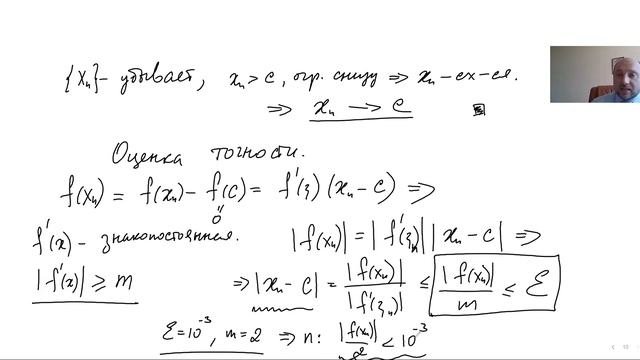 {xₙ} - убывает, xₙ > c, огр. снизу ⇒ xₙ - сх-ся.
⇒ xₙ → c
Оценка точности.
f(xₙ) = f(xₙ) - f(c) = f'(ξ) (xₙ - c) ⇒
0
f'(x) - знакопостоянная. |f(xₙ)| = |f'(ξₙ)| |xₙ - c| ⇒
|f'(x)| ≥ m ⇒ |xₙ - c| = |f(xₙ)| / |f'(ξₙ)| ≤ |f(xₙ)| / m ≤ ε
ε = 10⁻³, m = 2 ⇒ n: |f(xₙ)| / 2 < 10⁻³